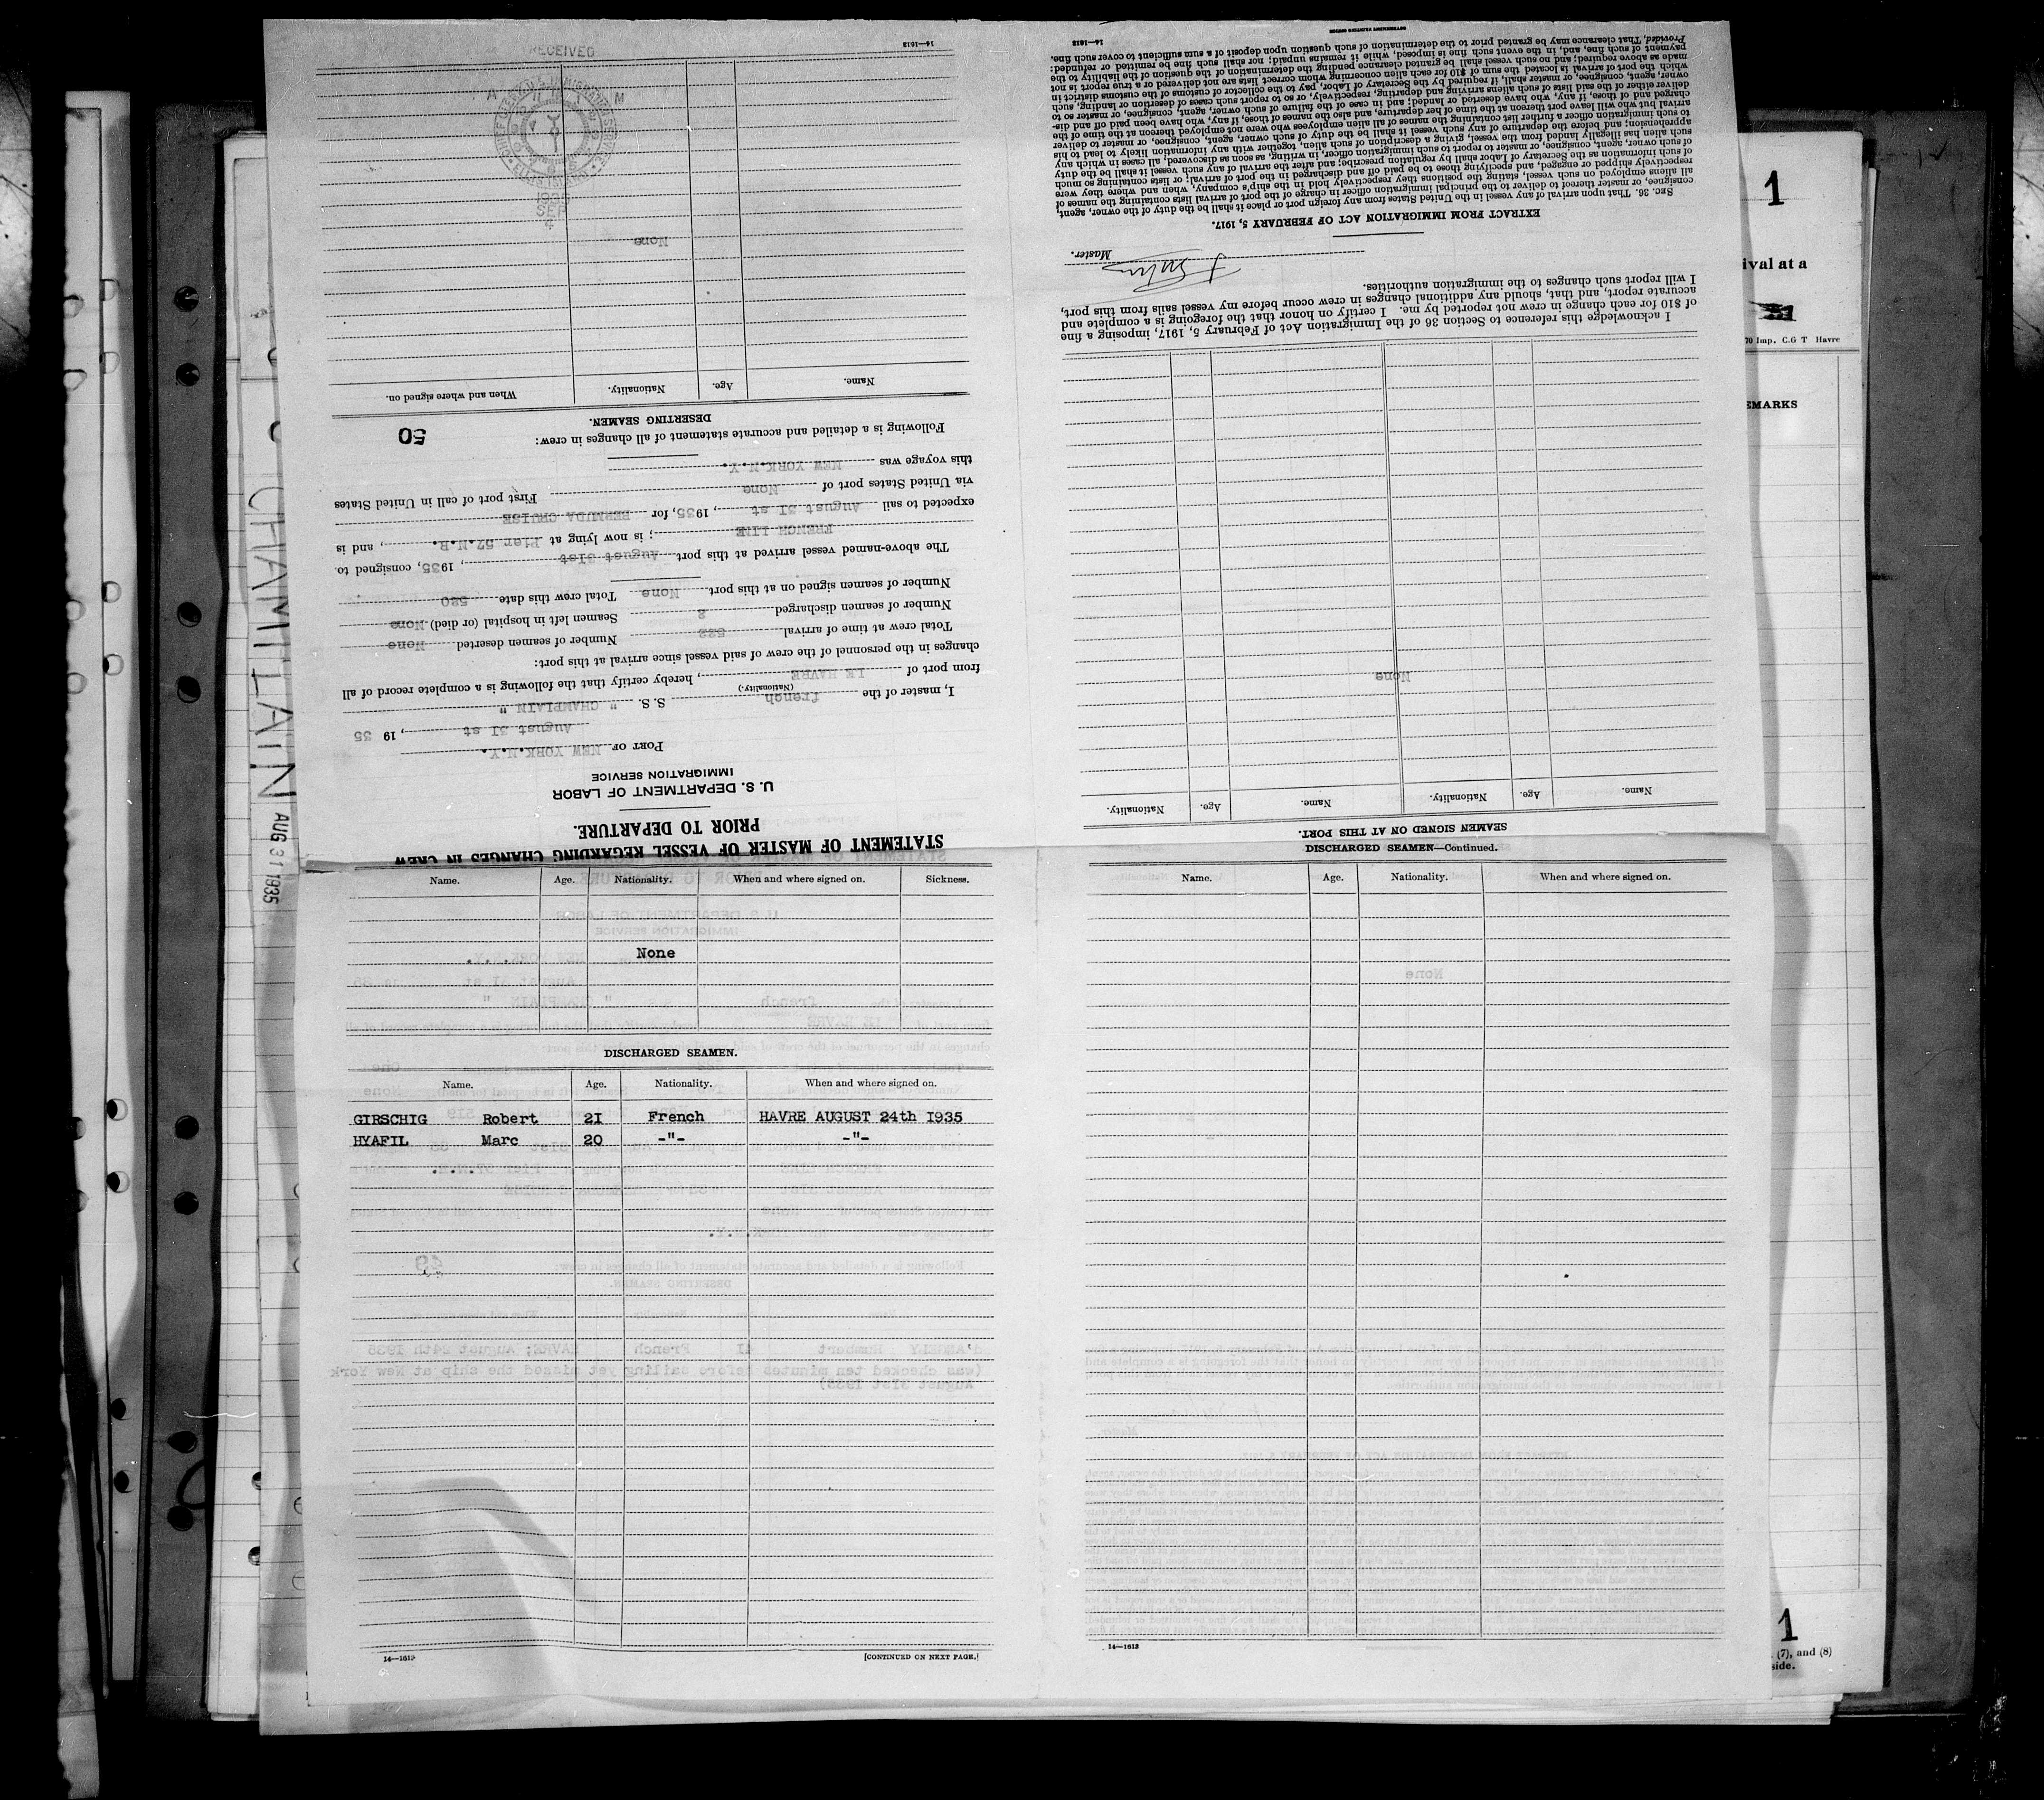 CHAMPLAIN AUG 31 1935
STATEMENT OF MASTER OF VESSEL REGARDING CHANGES IN CREW
PRIOR TO DEPARTURE.
U. S. DEPARTMENT OF LABOR
IMMIGRATION SERVICE
PORT OF NEW YORK.N.Y.
August 31 st, 19 35
I, master of the french S. S. " CHAMPLAIN "
(Nationality.)
from port of LE HAVRE, hereby certify that the following is a complete record of all
changes in the personnel of the crew of said vessel since arrival at this port:
Total crew at time of arrival 522 Number of seamen deserted None
Number of seamen discharged 2 Seamen left in hospital (or died) None
Number of seamen signed on at this port None Total crew this date 520
The above-named vessel arrived at this port August 31st, 1935, consigned to
FRENCH LINE; is now lying at Pier 57.N.R., and is
expected to sail August 31 st, 1935, for BERMUDA CRUISE
via United States port of None First port of call in United States
this voyage was NEW YORK.N.Y.
Following is a detailed and accurate statement of all changes in crew:
50
DESERTING SEAMEN.
Name. Age. Nationality. When and where signed on.
None
1935
SEP
4
RECEIVED
14—1613
Name. Age. Nationality. When and where signed on. Sickness.
None
DISCHARGED SEAMEN.
Name. Age. Nationality. When and where signed on.
GIRSCHIG Robert 21 French HAVRE AUGUST 24th 1935
HYAFIL Marc 20 -"- -"-
14—1613 [CONTINUED ON NEXT PAGE.]
DISCHARGED SEAMEN—Continued.
Name. Age. Nationality. When and where signed on.
None
14—1613
SEAMEN SIGNED ON AT THIS PORT.
Name. Age. Nationality. Name. Age. Nationality.
None
I acknowledge this reference to Section 36 of the Immigration Act of February 5, 1917, imposing a fine
of $10 for each change in crew not reported by me. I certify on honor that the foregoing is a complete and
accurate report, and that, should any additional changes in crew occur before my vessel sails from this port,
I will report such changes to the immigration authorities.
Master.
EXTRACT FROM IMMIGRATION ACT OF FEBRUARY 5, 1917.
SEC. 36. That upon arrival of any vessel in the United States from any foreign port or place it shall be the duty of the owner, agent,
consignee, or master thereof to deliver to the principal immigration officer in charge of the port of arrival lists containing the names of
all aliens employed on such vessel, stating the positions they respectively hold in the ship's company, when and where they were
respectively shipped or engaged, and specifying those to be paid off and discharged in the port of arrival; or lists containing so much
of such information as the Secretary of Labor shall by regulation prescribe; and after the arrival of any such vessel it shall be the duty
of such owner, agent, consignee, or master to report to such immigration officer, in writing, as soon as discovered, all cases in which any
such alien has illegally landed from the vessel, giving a description of such alien, together with any information likely to lead to his
apprehension; and before the departure of any such vessel it shall be the duty of such owner, agent, consignee, or master to deliver
to such immigration officer a further list containing the names of all alien employees who were not employed thereon at the time of the
arrival but who will leave port thereon at the time of her departure, and also the names of those, if any, who have been paid off and dis-
charged and of those, if any, who have deserted or landed; and in case of the failure of such owner, agent, consignee, or master so to
deliver either of the said lists of such aliens arriving and departing, respectively, or so to report such cases of desertion or landing, such
owner, agent, consignee, or master shall, if required by the Secretary of Labor, pay to the collector of customs of the customs district in
which the port of arrival is located the sum of $10 for each alien concerning whom correct lists are not delivered or a true report is not
made as above required; and no such vessel shall be granted clearance pending the determination of the question of the liability to the
payment of such fine, and, in the event such fine is imposed, while it remains unpaid; nor shall such fine be remitted or refunded:
Provided, That clearance may be granted prior to the determination of such question upon deposit of a sum sufficient to cover such fine.
14—1613
1
ival at a
70 Imp. C.G T Havre
EMARKS
1
(7), and (8)
side.